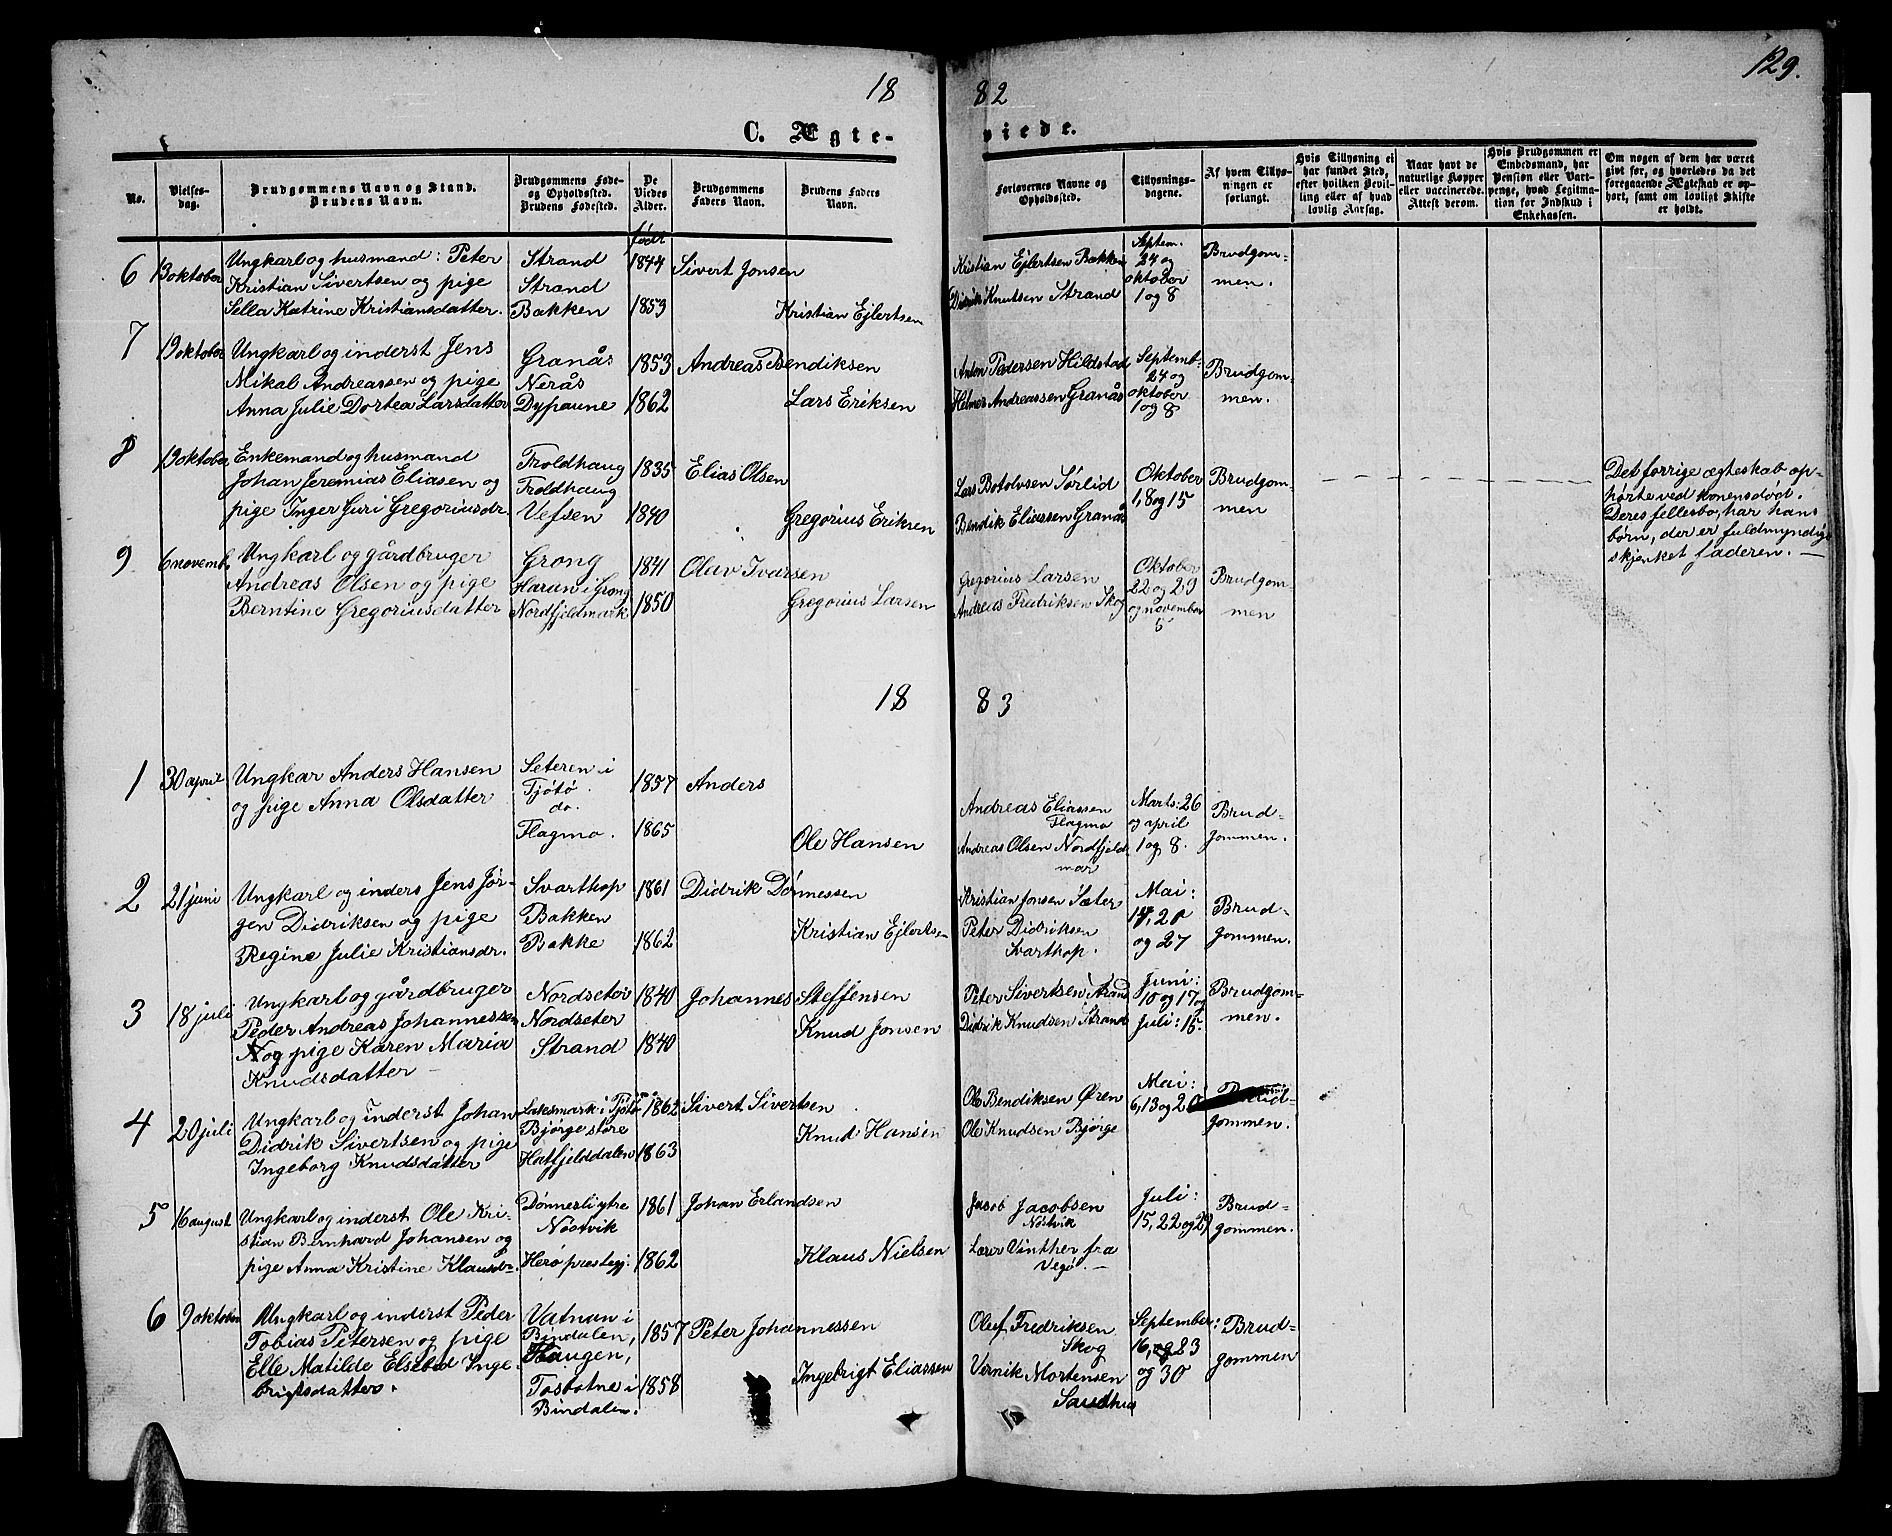 129.
18 82
C. Ægte-viede.
No.
Vielses-dag.
Brudgommens Navn og Stand. Brudens Navn.
Brudgommens Føde- og Opholdssted. Brudens Fødested.
De Viedes Alder.
Brudgommens Faders Navn.
Brudens Faders Navn.
Forlovernes Navne og Opholdssted.
Tillysnings-dagene.
Af hvem Tillysningen er forlangt.
Hvis Tillysning ei har fundet Sted, efter hvilken Bevilling eller af hvad lovlig Aarsag.
Naar havt de naturlige Kopper eller vaccinerede. Attest derom.
Hvis Brudgommen er Embedsmand, har Pension eller Vartpenge, hvad Legitmation for Indskud i Enkekassen.
Om nogen af dem har været gift før, og hvorledes da det foregaaende Ægteskab er ophørt, samt om lovligt Skifte er holdt.
født
6 13 oktober Ungkarl og husmand: Peter Strand 1844 Sivert Jonsen Kristian Ejlertsen Bakken Septem. 24 og Brudgom-
Kristian Sivertsen og pige Strand Didrik Knutsen Strand oktober men.
Sella Katrine Kristiansdatter. Bakken 1853 Kristian Ejlertsen 1 og 8
7 19 oktober Ungkarl og inderst Jens Granås 1853 Andreas Bendiksen Anton Pedersen Hildstad Septemb. 24 og Brudgom-
Mikal Andreassen og pige Nerås
Anna Julie Dortea Larsdatter Dypaune 1862 Lars Eriksen Helmer Andreassen Granås oktober 1 og 8 men.
8 19 oktober Enkemand og husmand Troldhaug 1835 Elias Olsen Lars Botolvsen Sørlid Oktober Brudgom- Det forrige ægteskab op-
Johan Jeremias Eliasen og Troldhaug 1, 8 og 15 men hørte ved konens død.
pige Inger Guri Gregoriusdr. Vefsen 1840 Gregorius Eriksen Bendik Eliassen Granås Deres fellesbo, har hans
børn, der er fuldmyndige
skjenket faderen. —
9 6 novemb. Ungkarl og gårdbruger Grong 1841 Olav Ivarsen Gregorius Larsen Oktober Brudgom-
Andreas Olsen og pige Haran i Grong 22 og 29 men
Berntine Gregoriusdatter Nordfjeldmark 1850 Gregorius Larsen Andreas Fredriksen Skog og november 5
18 83
1 30 april Ungkar Anders Hansen Seteren i Tjøtø. 1857 Anders Andreas Eliassen Flagmo Marts: 26 og april Brud-
og pige Anna Olsdatter do.
Flagmo. 1865 Ole Hansen Andreas Olsen Nordfjeld mar 1 og 8. gommen.
2 21 juni Ungkarl og inders Jens Jør- Svarthop 1861 Didrik Dønnessen Kristian Jonsen Sæter Mai: Brud-
gen Didriksen og pige Bakken Peter Didriksen 20 gommen.
Regine Julie Kristiansdr. Bakke 1862 Kristian Ejlertsen Svarthop. og 27
3 18 juli Ungkarl og gårdbruger Nordseter 1840 Johannes Steffensen Peter Sivertsen Strand Juni: 10 og 17 og Brudgom-
Peder Andreas Johannessen Nordseter Knud Jonsen Didrik Knudsen Strand Juli: 15. men.
og pige Karen Maria Strand 1840
Knudsdatter —
4 20 juli Ungkarl og Inderst Johan Laksmark i Tjøtø 1862 Sivert Sivertsen Ole Bendiksen Øren Mai: 6, 13 og 20 Brud-
Didrik Sivertsen og pige Bjørge støre Knud Hansen Ole Knudsen Bjørge gommen.
Ingeborg Knudsdatter Hatfjelddalen 1863
5 16 august Ungkarl og inderst Ole Kri- Dønnes 1861 Johan Erlandsen Jacob Jacobsen Nøstvik Juli: Brud-
stian Bernhard Johansen og Nøstvik 15, 22 og 29 gommen.
pige Anna Kristine Klausdr. Herø prestegj: 1862 Klaus Nielsen Lærer Vinther fra Vegø. —
6 9 oktober Ungkarl og inderst Peder Vatnan i 1857 Peter Johannessen Oluf Fredriksen September: Brud-
Tobias Petersen og pige Bindalen, Skog 16, og 23 gommen
Elle Matilde Elsebed Inge- Haugen, Ingebrigt Eliassen Vernik Mortensen og 30
brigtsdatter. Tosbotne i 1858 Sandhus
Bindalen.